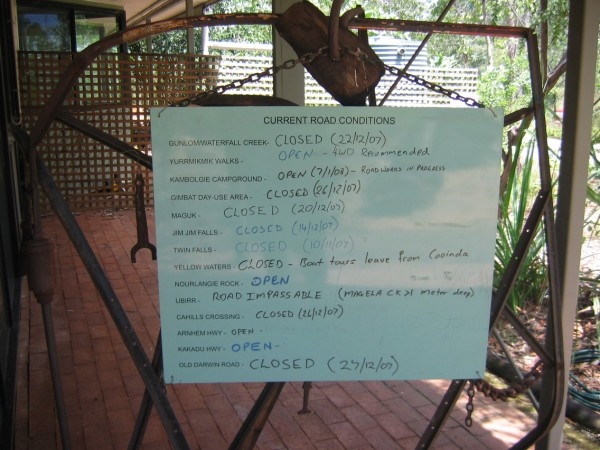 CURRENT ROAD CONDITIONS
GUNLOM/WATERFALL CREEK- CLOSED (22/12/07)
YURRMIKMIK WALKS - OPEN - 4WD Recommended
KAMBOLGIE CAMPGROUND - OPEN (7/1/08) - ROADWORKS IN PROGRESS
GIMBAT DAY-USE AREA - CLOSED (26/12/07)
MAGUK - CLOSED (20/12/07)
JIM JIM FALLS - CLOSED (14/12/07)
TWIN FALLS - CLOSED (10/11/07)
YELLOW WATERS - CLOSED - Boat tours leave from Cooinda
NOURLANGIE ROCK - OPEN
UBIRR - ROAD IMPASSABLE (MAGELA CK >1 meter deep)
CAHILLS CROSSING - CLOSED (26/12/07)
ARNHEM HWY - OPEN -
KAKADU HWY - OPEN -
OLD DARWIN ROAD - CLOSED (27/12/07)